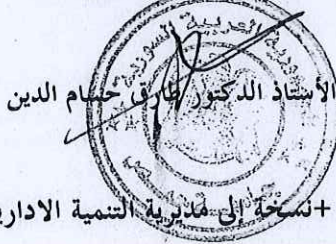 الجمهورية العربية السورية
الأستاذ الدكتور طارق حسام الدين
+نسخة إلى مديرية التنمية الادارية